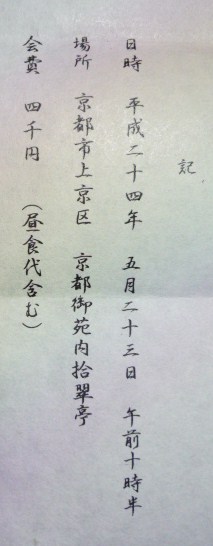 記
日時 平成二十四年 五月二十三日 午前十時半
場所 京都市上京区 京都御苑内拾翠亭
会費 四千円 (昼食代含む)